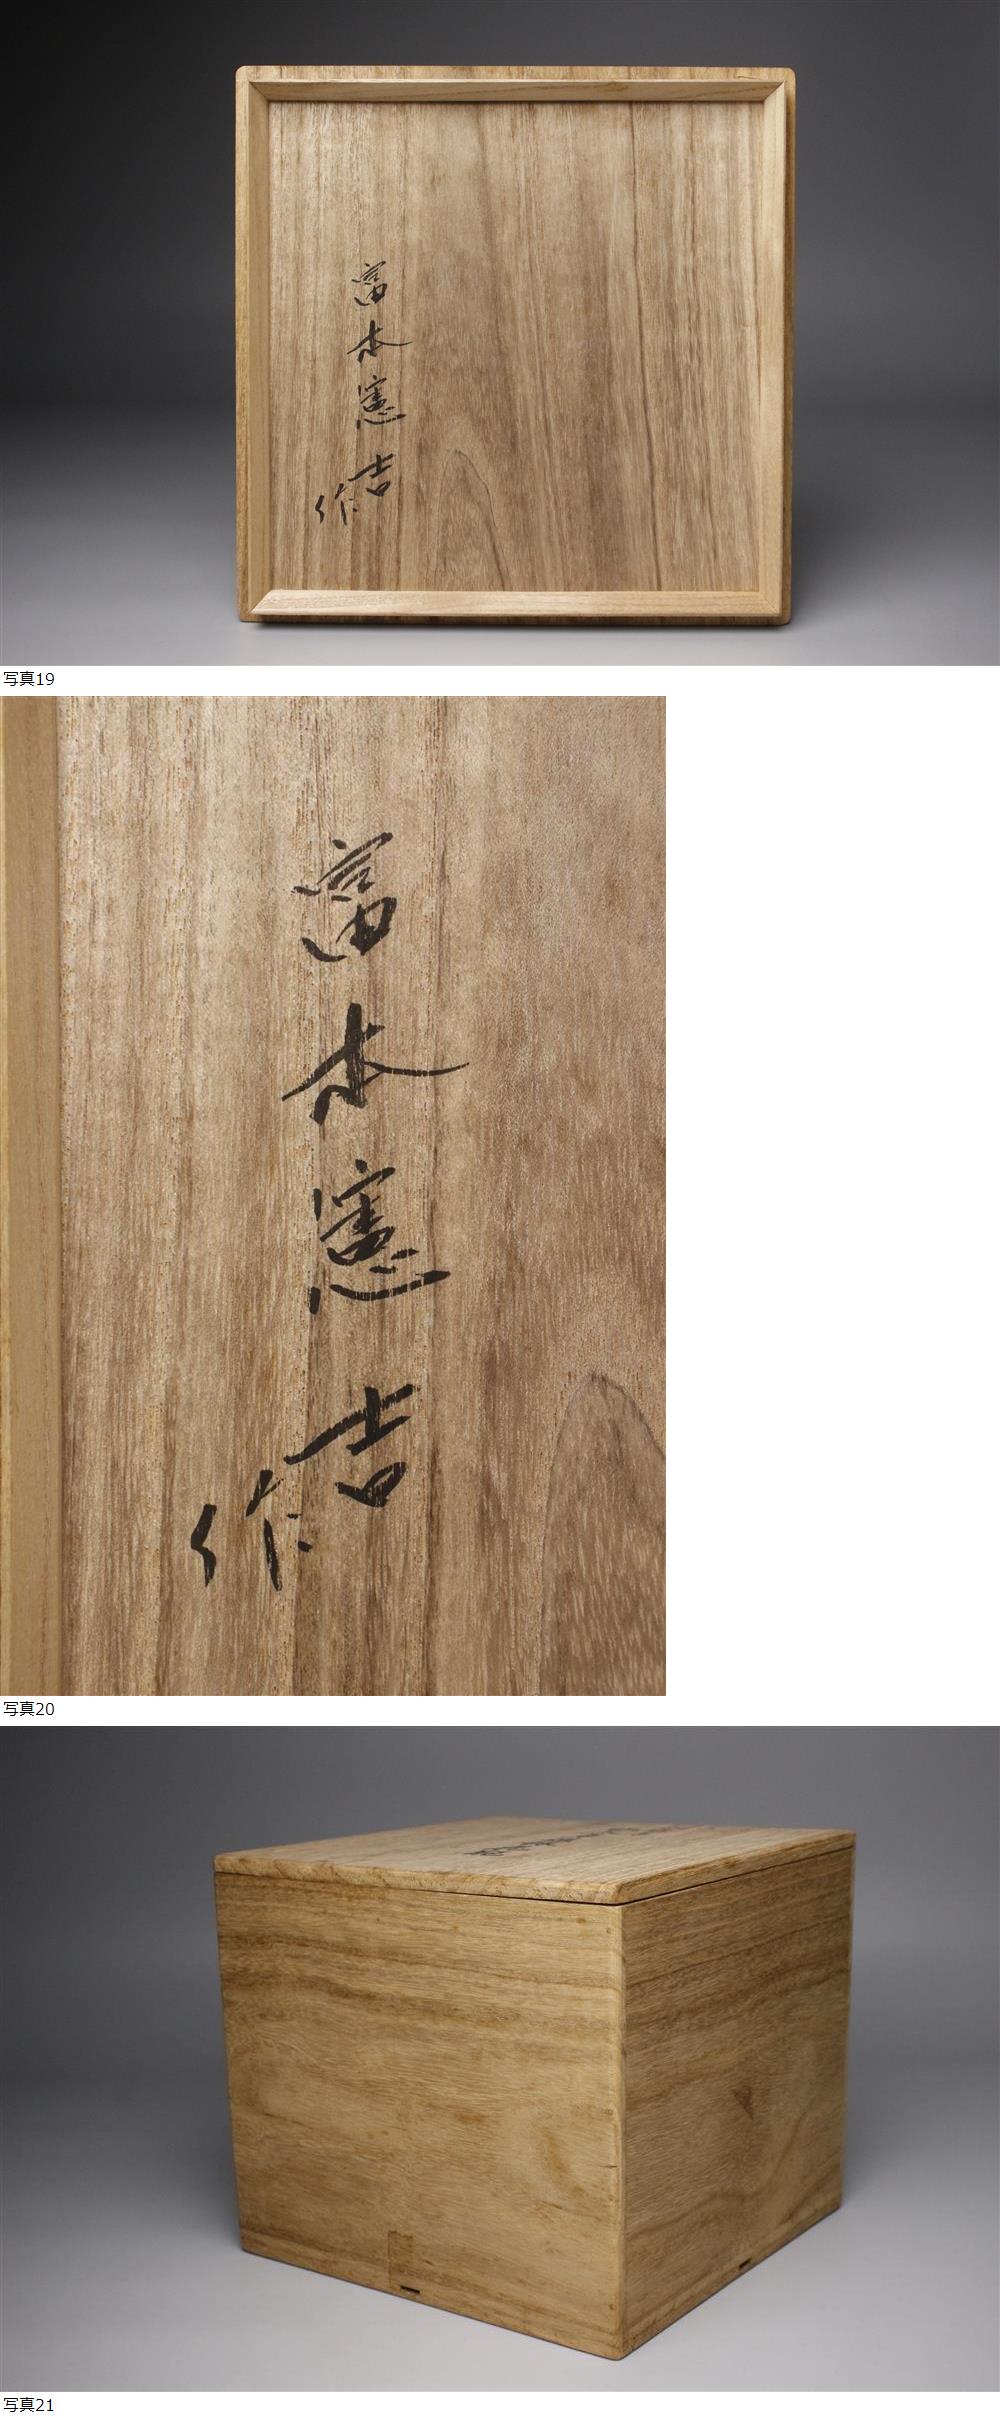 富本憲吉
作
写真19
富本憲吉
作
写真20
写真21